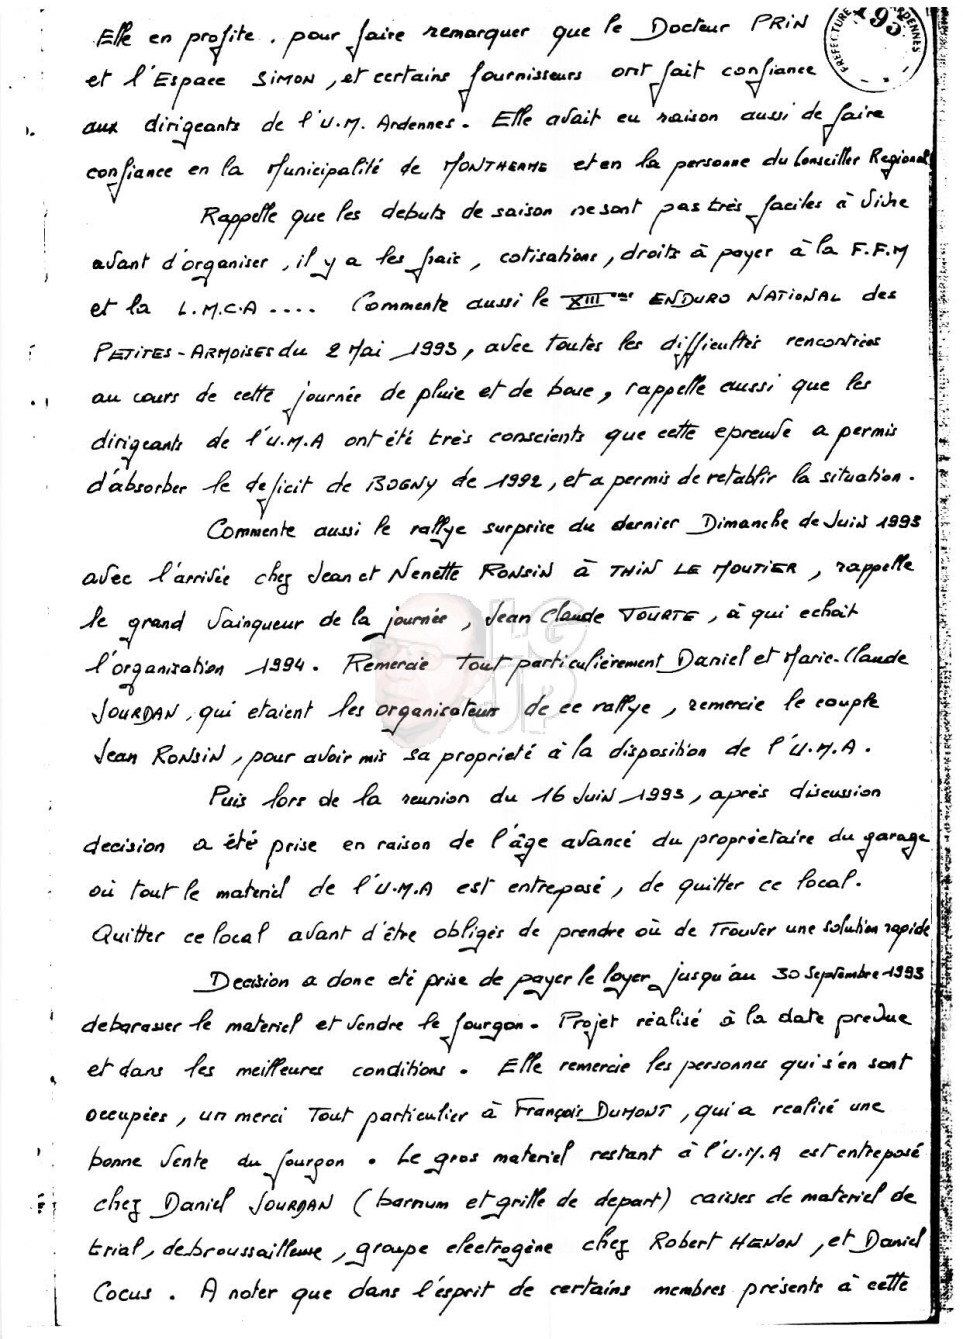 PREFECTURE ARDENNES
193
Elle en profite. pour faire remarquer que le Docteur PRIN
et l'Espace SIMON, et certains fournisseurs ont fait confiance
aux dirigeants de l'U.M. Ardennes. Elle avait eu raison aussi de faire
confiance en la Municipalité de MONTHERME et en la personne du Conseiller Regional
Rappelle que les debuts de saison ne sont pas très faciles à vivre
avant d'organiser, il y a les frais, cotisations, droits à payer à la F.F.M
et la L.M.C.A .... Commente aussi le XIII eme ENDURO NATIONAL des
PETITES-ARMOISES du 2 Mai 1993, avec toutes les difficultés rencontrées
au cours de cette journée de pluie et de boue, rappelle aussi que les
dirigeants de l'U.M.A ont été très conscients que cette epreuve a permis
d'absorber le deficit de BOGNY de 1992, et a permis de retablir la situation.
Commente aussi le rallye surprise du dernier Dimanche de Juin 1993
avec l'arrivée chez Jean et Nenette RONSIN à THIN LE MOUTIER, rappelle
le grand vainqueur de la journée, Jean Claude TOURTE, à qui echoit
l'organisation 1994. Remercie Tout particulièrement Daniel et Marie-Claude
JOURDAN, qui etaient les organisateurs de ce rallye, remercie le couple
Jean RONSIN, pour avoir mis sa proprieté à la disposition de l'U.M.A.
LG
JP
Puis lors de la reunion du 16 Juin 1993, après discussion
decision a été prise en raison de l'âge avancé du proprietaire du garage
où tout le materiel de l'U.M.A est entreposé, de quitter ce local.
Quitter ce local avant d'être obligés de prendre où de Trouver une solution rapide
Decision a donc eté prise de payer le loyer jusqu'au 30 Septembre 1993
debarasser le materiel et vendre le fourgon. Projet réalisé à la date prevue
et dans les meilleures conditions. Elle remercie les personnes qui s'en sont
occupées, un merci Tout particulier à François DUMONT, qui a realisé une
bonne vente du fourgon. Le gros materiel restant à l'U.M.A est entreposé
chez Daniel JOURDAN (barnum et grille de depart) caisses de materiel de
trial, debroussailleuse, groupe electrogène chez Robert HENON, et Daniel
Cocus. A noter que dans l'esprit de certains membres présents à cette